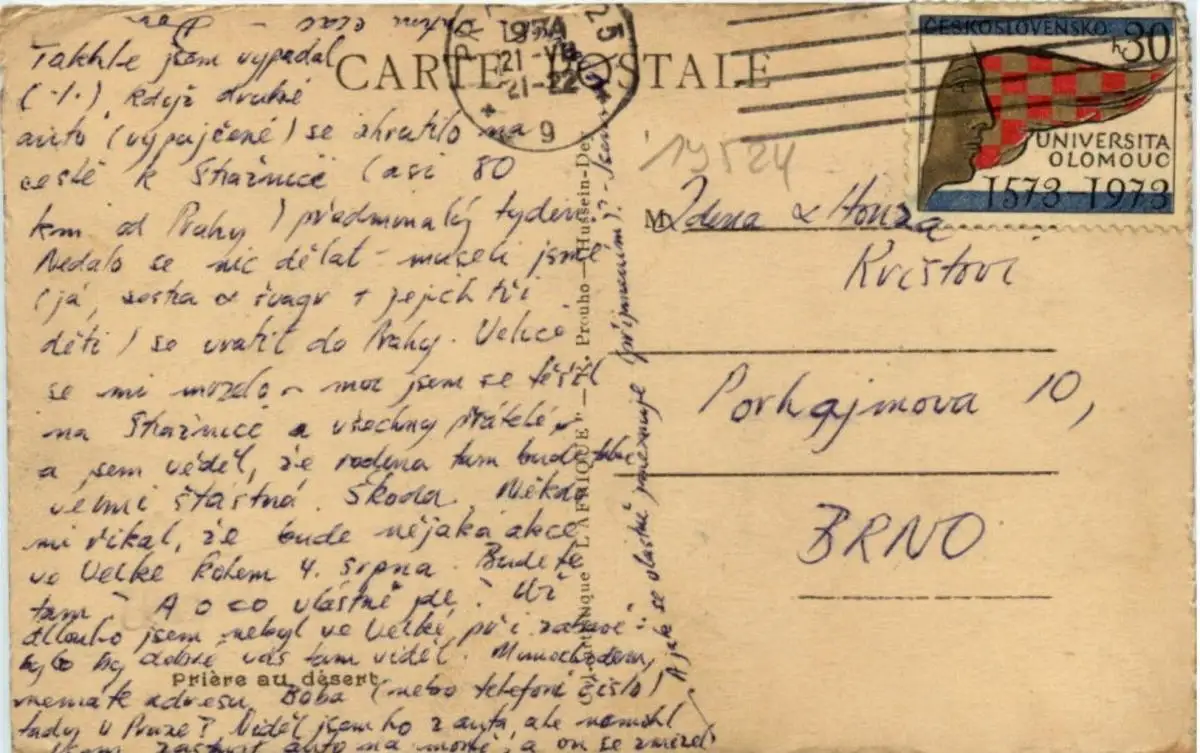 Takhle jsem vypadal
(-1.) když druhé
auto (vypujčené) se zhratilo na
cestě k Stražnici (asi 80
km od Prahy) předminulý tyden.
Nedalo se nic dělat - museli jsme
(já, sestra a švagr + jejich tři
děti) se vratit do Prahy. Velice
se mi mrzelo - moc jsem se těšil
na Stražnici a všechny přátelé
a jsem věděl, že rodina tam bude
velmi štastná. Škoda. Někdo
mi řikal, že bude nějaká akce
ve Velke kolem 4. srpna. Budete
tam? A o co vlastně jde? Už
dlouho jsem nebyl ve Velké, při zabavě:
bylo by dobré vás tam viděl. Mimochodem,
nemáte adresu Boba (nebo telefoní čislo)
tady v Praze? Viděl jsem ho z auta, ale nemohl
jsem zastavit auto na moně, a on se zmizel
A jak se vlastně jmenuje (přijmením)? - Jsem
CARTE POSTALE
PR
1974
21.VII
21-22
9
ČESKOSLOVENSKO
30 h
UNIVERSITA
OLOMOUC
1573-1973
19524
M Zdena & Honza
Kvištovi
Porhajmova 10,
BRNO
"L'AFRIQUE" — K. Prouho — Hussein-Dey
Prière au désert